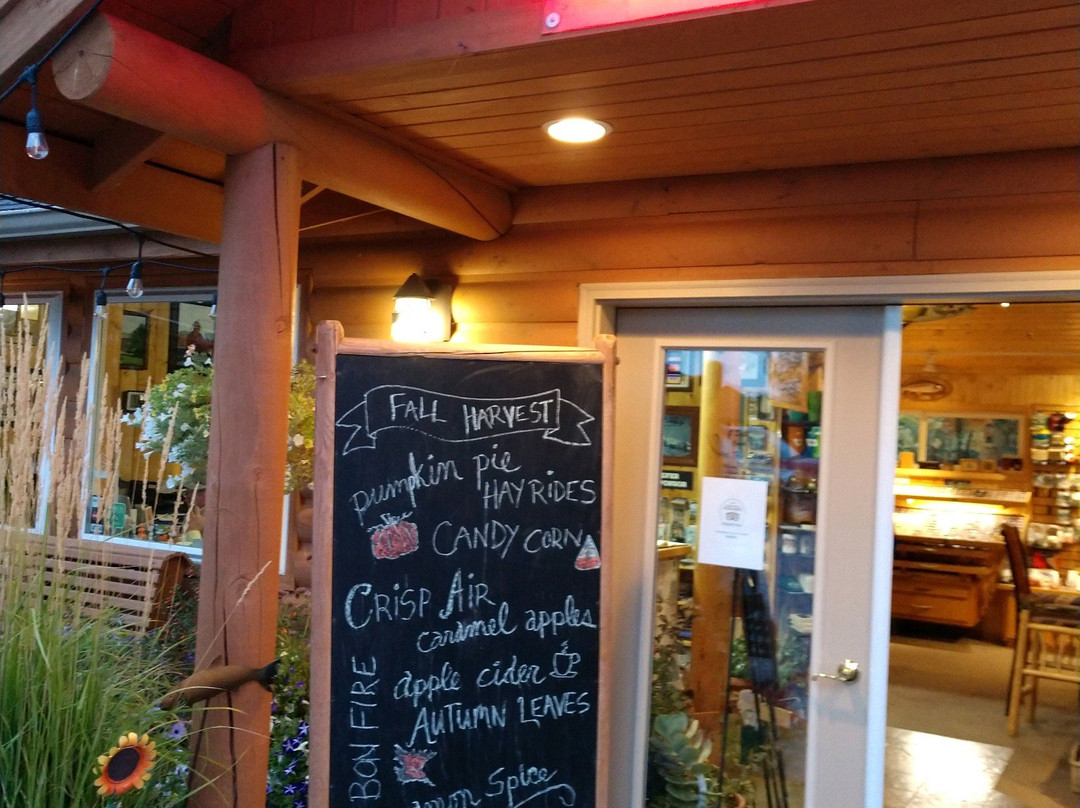 FALL HARVEST
pumpkin pie
HAYRIDES
CANDY CORN
CRISP AIR
caramel apples
apple cider
AUTUMN LEAVES
BONFIRE
Spice